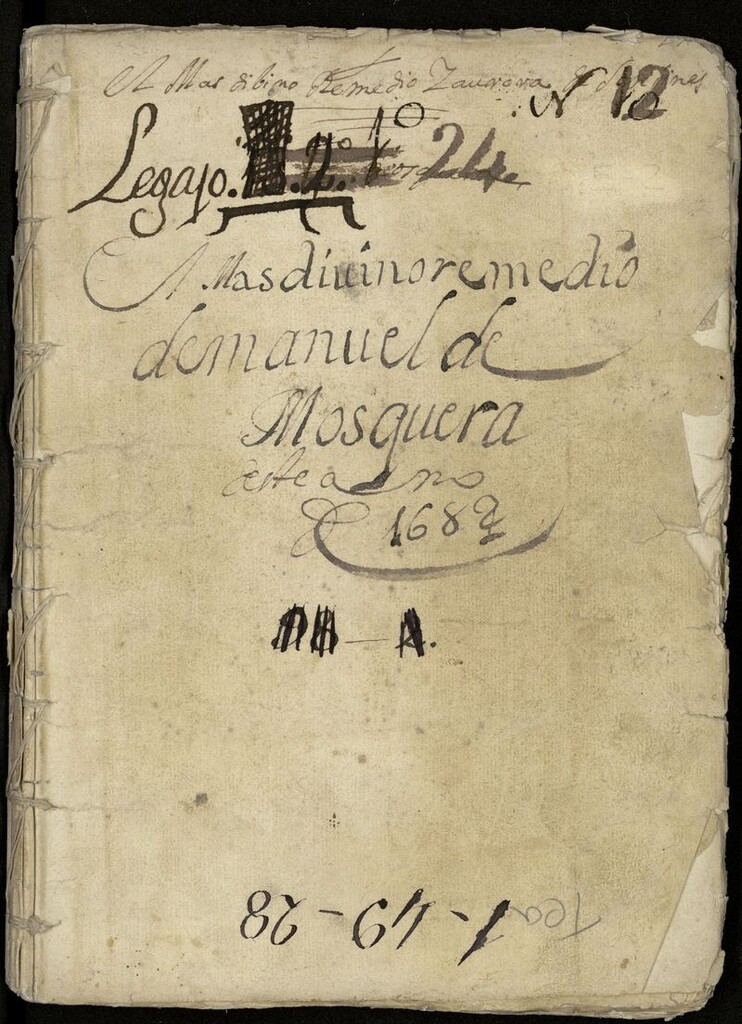 El Mas dibino Remedio Zaurora
N 12
Legajo. 2º. 1º 24
El Mas diuino remedio
de manuel de
Mosquera
deste año
de 1689
1-49-28
Tea